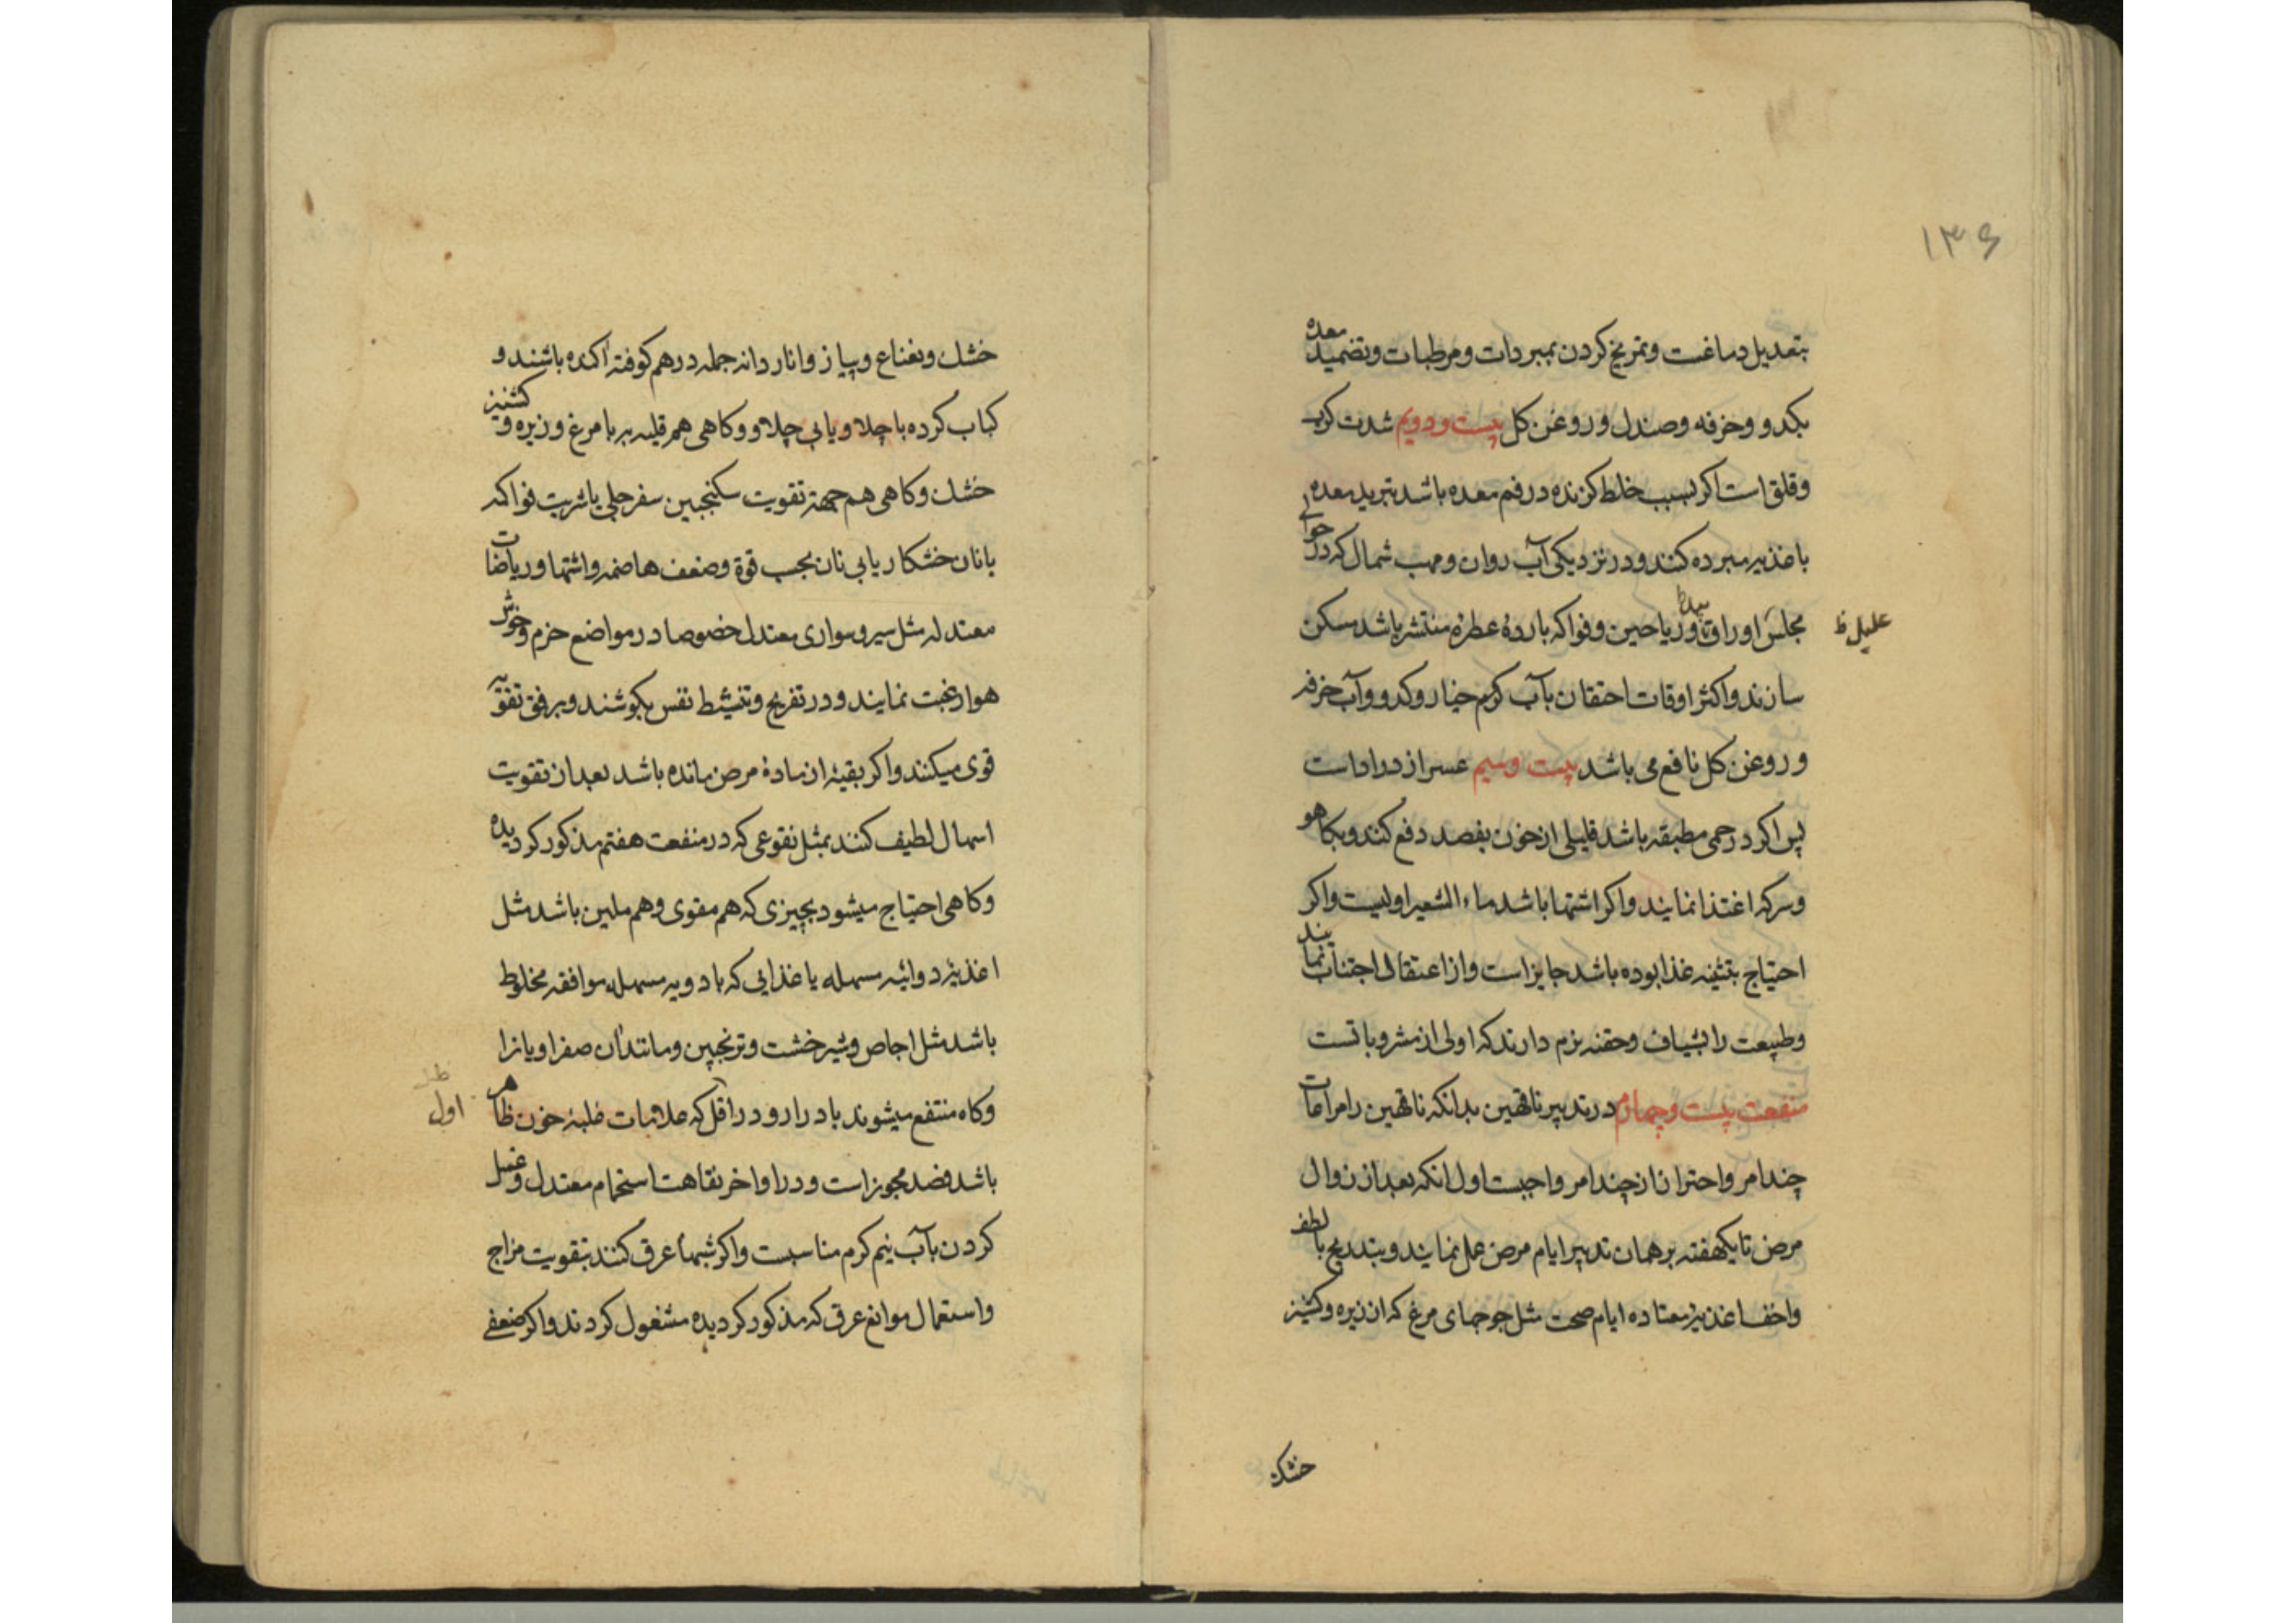 ۱۳۶
بتعدیل دماغست و تمریخ کردن بمبردات و مرطبات و تضمید معده
بکدو و خرفه و صندل و روغن کل بیست و دویم شدت کرب
و قلق است اکر بسبب خلط کزنده در فم معده باشد تبرید معده
باغذیه مبرده کنند و در نزدیکی آب روان و مهب شمال که در حوالی
مجلس اوراق و ریاحین و فواکه بارده عطره منتشر باشد مسکن
علیل ظ
سازند و اکثر اوقات احتقان بآب کرم خیار و کدو و آب خرفه
و روغن کل نافع می باشد بیست و سیم عسر ازدراد است
پس اکر در حمی مطبقه باشد قلیلی از خون بفصد دفع کنند و بکاهو
و سرکه اغتذا نمایند و اکر اشتها باشد ماء الشعیر اولیست و اکر
احتیاج بتثنیه غذا بوده باشد جایز است و از اعتقال اجتناب نمایند
و طبیعت را بشیاف و حقنه نرم دارند که اولی از مشروباتست
منفعت بیست و چهارم در تدبیر ناقهین بدانکه ناقهین را مراعات
چند امر و احتراز از چند امر واجبست اول انکه بعد از زوال
مرض تا یکهفته بر همان تدبیر ایام مرض عمل نمایند و بتدریج بالطف
و اخف اغذیه معتاده ایام صحت مثل جوجهای مرغ که از زیره و کشنیز
خشک
خشک و نعناع و پیاز و انار دانه جمله در هم کوفته اکنده باشند و
کباب کرده با چلاو یا بی چلاو و کاهی هم قلیه بر با مرغ و زیره و کشنیز
خشک و کاهی هم جهة تقویت سکنجبین سفرجلی یا شربت فواکه
با نان خشکار یا بی نان بحسب قوة و ضعف هاضمه و اشتها و ریاضات
معتدله مثل سیر و سواری معتدل خصوصا در مواضع خرم و خوش
هوا رغبت نمایند و در تفریح و تنشیط نفس بکوشند و برفق تنقیه
قوی میکنند و اکر بقیه از ماده مرض مانده باشد بعد از تقویت
اسهال لطیف کنند بمثل نقوعی که در منفعت هفتم مذکور کردیده
و کاهی احتیاج میشود بچیزی که هم مقوی و هم ملین باشد مثل
اغذیه دوائیه مسهله یا غذایی که بادویه مسهله موافقه مخلوط
باشد مثل اجاص و شیرخشت و ترنجبین و مانند آن صفراویانرا
و کاه منتفع میشوند بادرار و در اقل که علامات غلبه خون ظاهر
اول
باشد فصد مجوز است و در اواخر نقاهت استحمام معتدل و غسل
کردن بآب نیم کرم مناسبست و اکر شبها عرق کنند بتقویت مزاج
و استعمال موانع عرق که مذکور کردیده مشغول کردند و اکر ضعفی